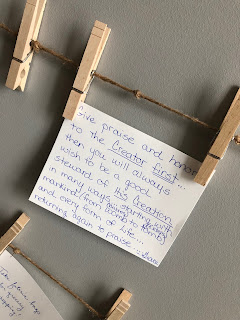 Give praise and honor
to the Creator first...
then you will always
wish to be a good
steward of this Creation
in many ways starting with
mankind (from womb to tomb)
and every form of life...
returning again to praise.